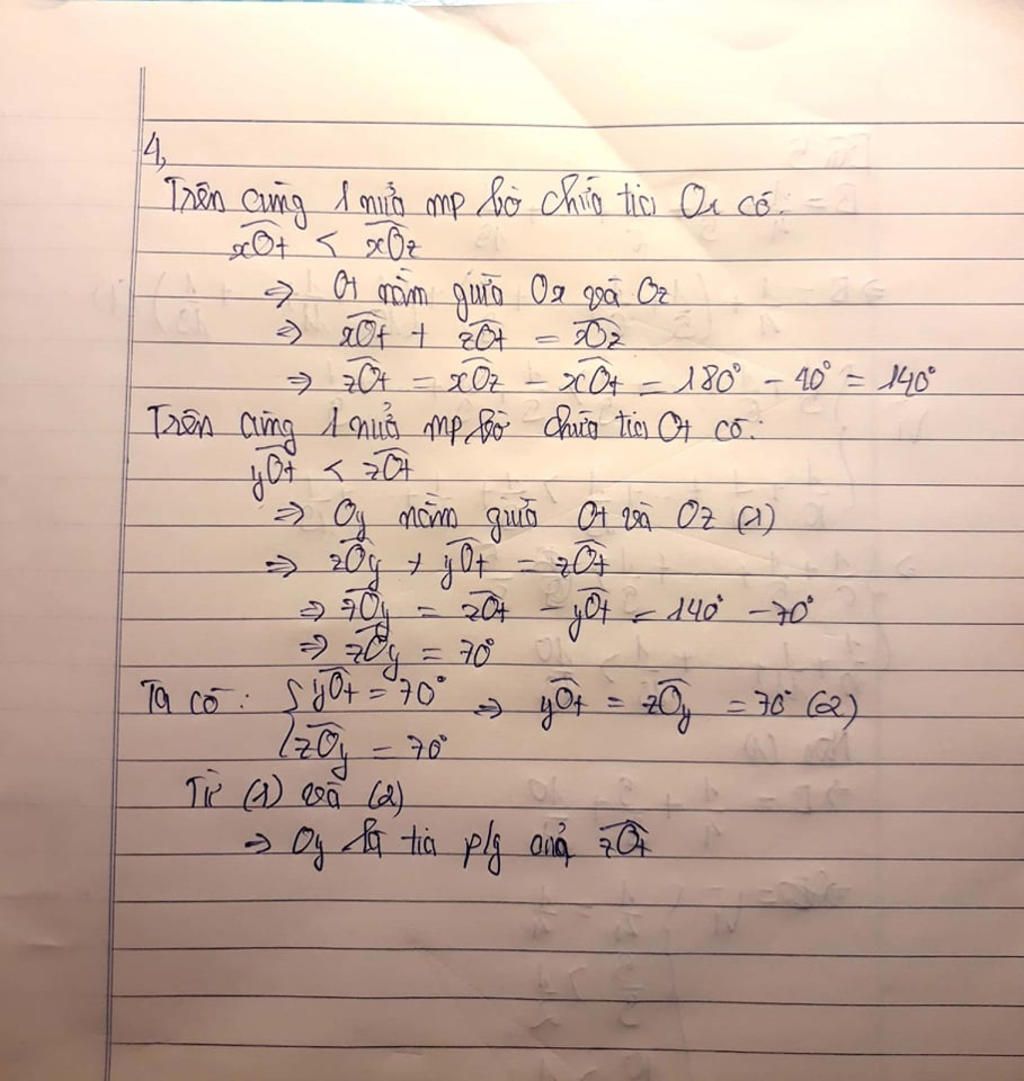 4,
Trên cùng 1 nửa mp bờ chứa tia Ox có:
xOt < xOz
=> Ot nằm giữa Ox và Oz
=> xOt + zOt = xOz
=> zOt = xOz - xOt = 180° - 40° = 140°
Trên cùng 1 nửa mp bờ chứa tia Ot có:
yOt < zOt
=> Oy nằm giữa Ot và Oz (1)
=> zOy + yOt = zOt
=> zOy = zOt - yOt = 140° - 70°
=> zOy = 70°
Ta có: { yOt = 70° => yOt = zOy = 70° (2)
zOy = 70°
Từ (1) và (2)
=> Oy là tia p/g của zOt